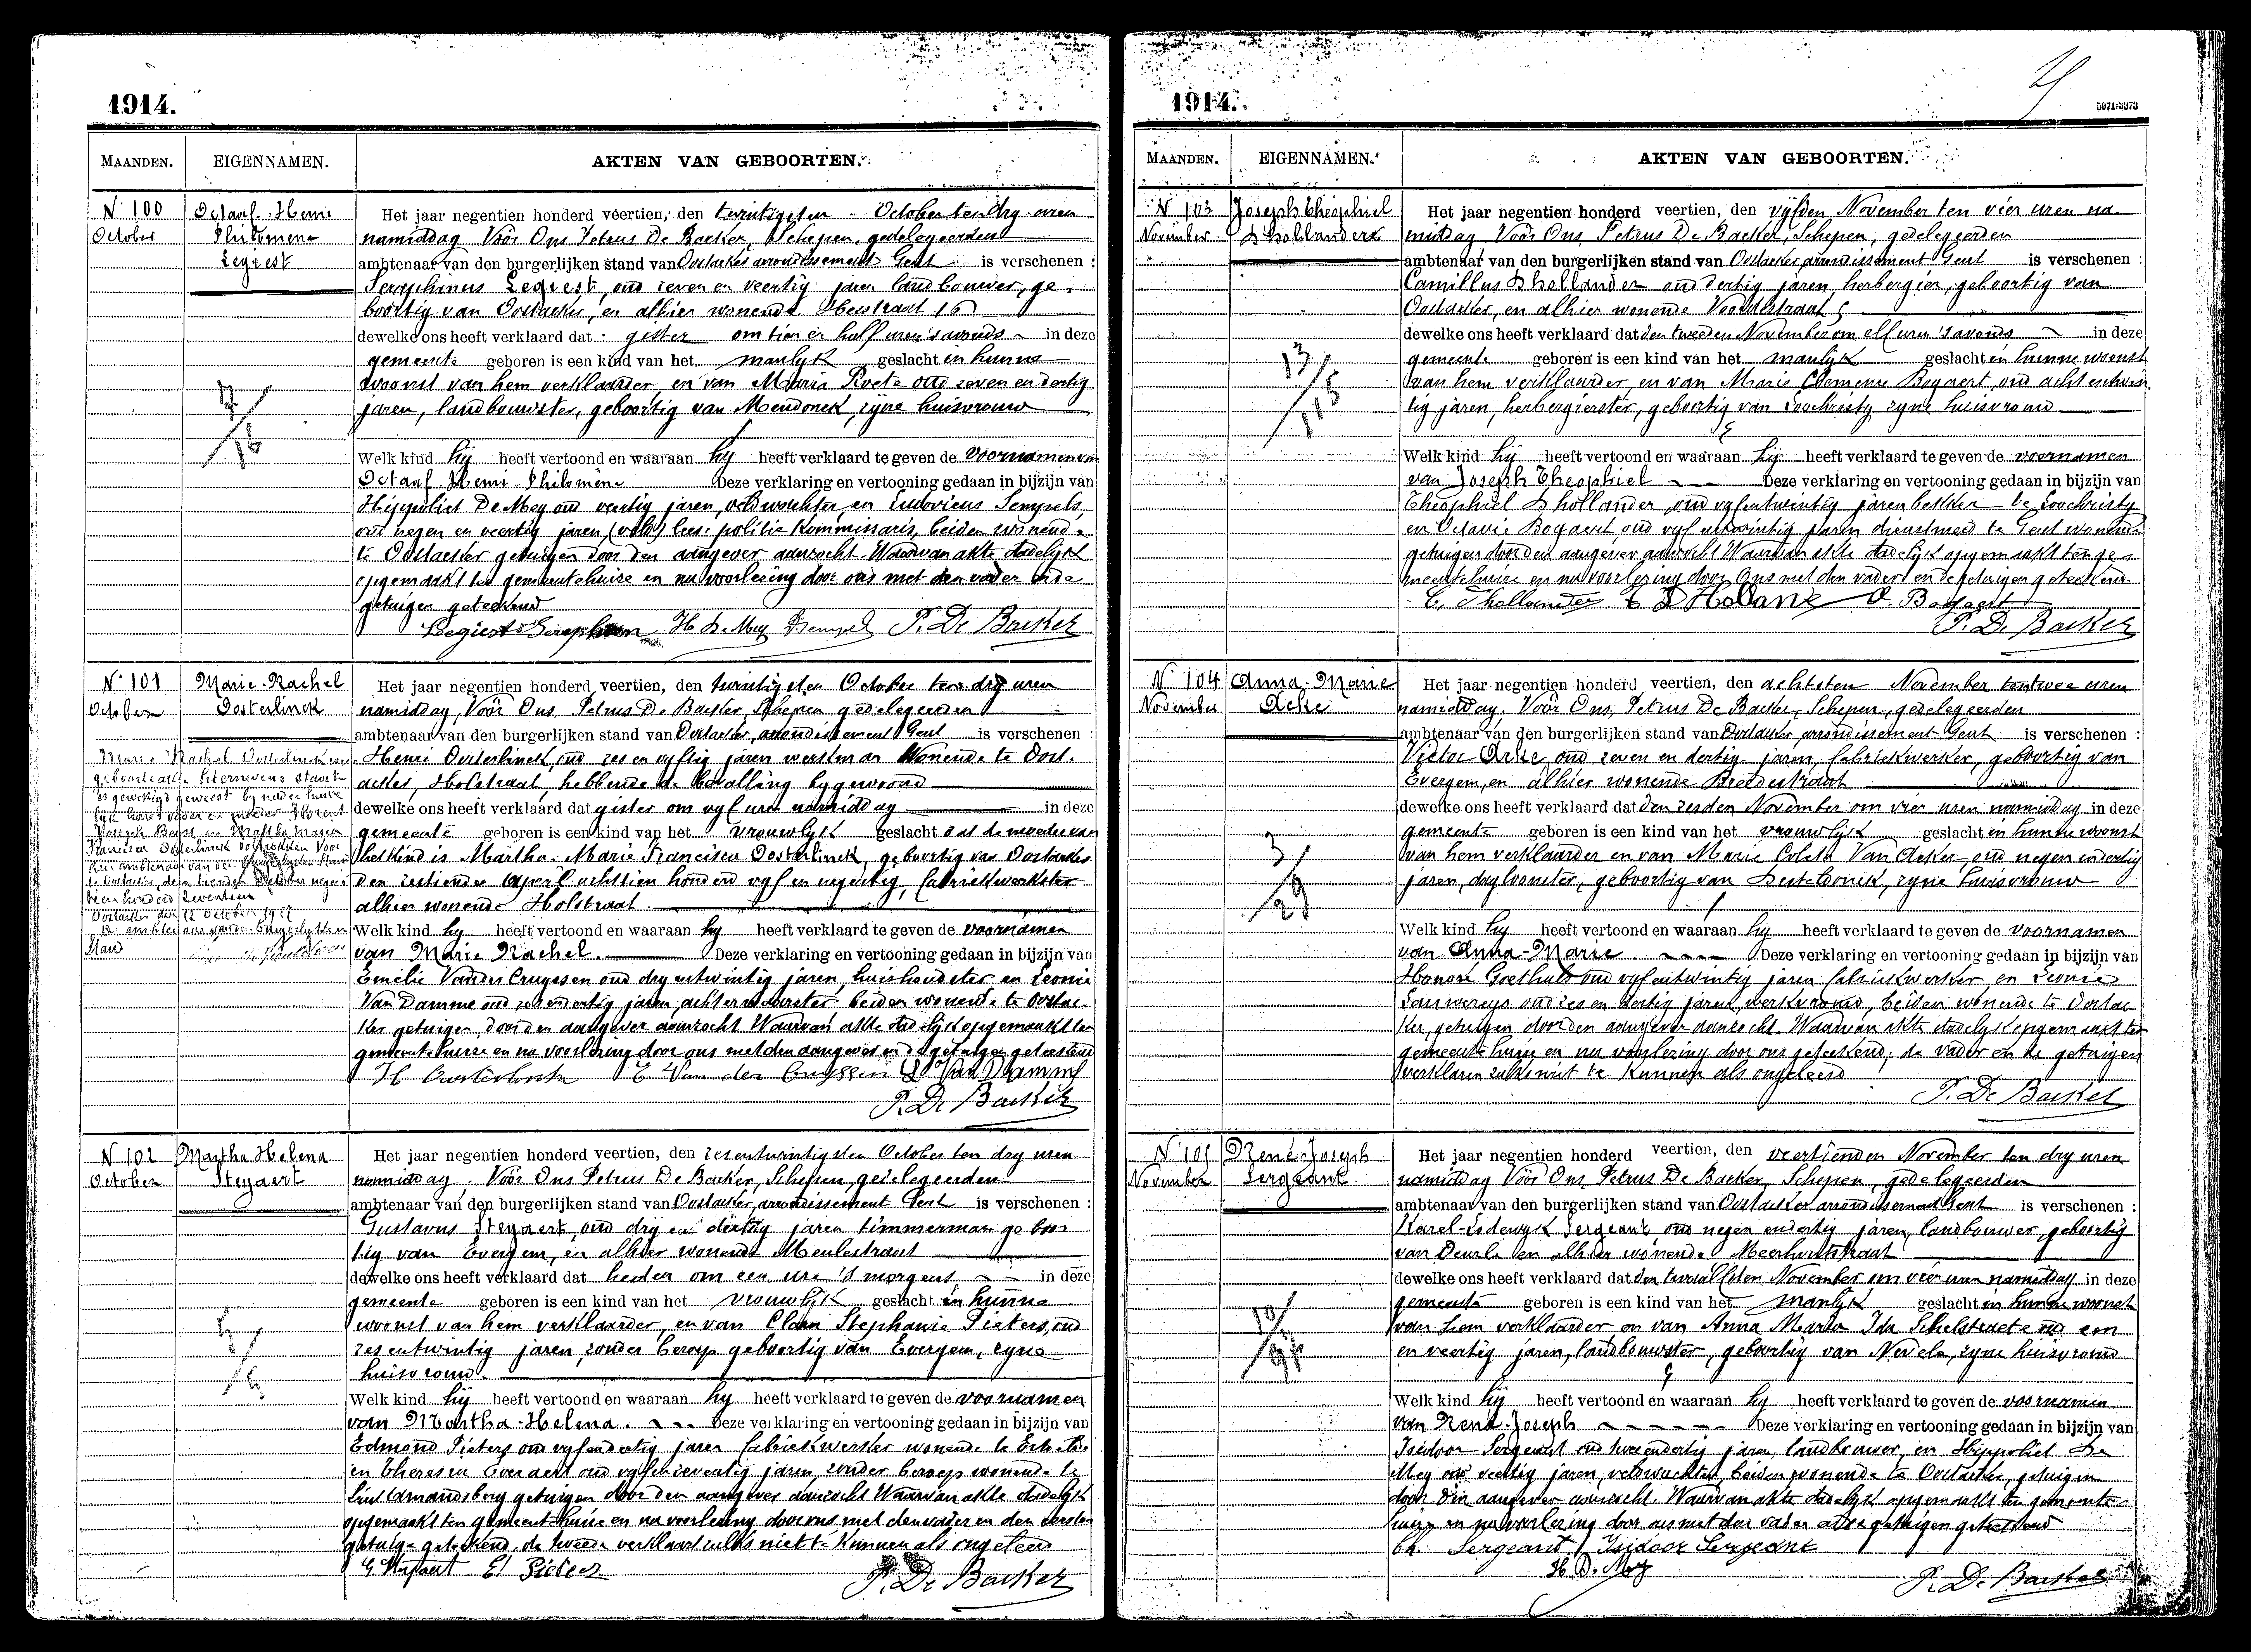 1914.
MAANDEN.
EIGENNAMEN.
AKTEN VAN GEBOORTEN.
N. 100
October
Octaaf-Henri
Philomene
Legiest
Het jaar negentien honderd veertien, den twintigsten October ten dry uren
namiddag Vóór Ons Petrus De Backer, Schepen, gedelegeerden
ambtenaar van den burgerlijken stand van Oostacker arrondissement Gent is verschenen :
Seraphinus Legiest, oud zeven en veertig jaren landbouwer, ge-
boortig van Oostacker, en alhier wonende Heistraat 16
dewelke ons heeft verklaard dat gister om tien en half uren 's avonds in deze
gemeente geboren is een kind van het manlyk geslacht in hunne
woonst van hem verklaarder, en van Maria Roets oud zeven en dertig
jaren, landbouwster, geboortig van Mendonck, zyne huisvrouw
7/16
Welk kind hy heeft vertoond en waaraan hy heeft verklaard te geven de voornamen van
Octaaf-Henri-Philomène Deze verklaring en vertooning gedaan in bijzijn van
Hippoliet De Mey oud veertig jaren, veldwachter en Ludovicus Sempels,
oud negen en veertig jaren, (veld) lees: politie kommissaris, beiden wonende
te Oostacker getuigen door den aangever aanzocht Waarvan akte dadelyk
opgemaakt ten gemeentehuize en na voorlezing door ons met den vader en de
getuigen geteekend
Legiest Seraphien H De Mey Sempels P. De Backer
N. 101
October
Marie-Rachel
Oosterlinck
Het jaar negentien honderd veertien, den twintigsten October ten dry uren
namiddag, Vóór Ons, Petrus De Backer, Schepen gedelegeerden
ambtenaar van den burgerlijken stand van Oostacker, arrondissement Gent is verschenen :
Henri Oosterlinck, oud zes en vyftig jaren werkman wonende te Oost-
acker, Holstraat, hebbende de bevalling bygewoond
dewelke ons heeft verklaard dat gister om vyf uren namiddag in deze
gemeente geboren is een kind van het vrouwlyk geslacht dat de moeder van
het kind is Martha-Marie Francisca Oosterlinck, geboortig van Oostacker
den zestienden April achttien honderd vyf en negentig, fabriekwerkster
alhier wonende Holstraat
Marie Rachel Oosterlinck wier
geboorteakte hiernevens staat
is gewettigd geweest by huwe
lyk haren vader en moeder Florent
Joseph Beyst en Martha Maria
Francisca Oosterlinck voltrokken voor
den ambtenaar van den burgerlyken stand
te Oostacker, den October negen
tien honderd zeventien
Oostacker den 12 October 1917
De ambtenaar van den burgerlyken
Stand
Welk kind hy heeft vertoond en waaraan hy heeft verklaard te geven de voornamen
van Marie Rachel. Deze verklaring en vertooning gedaan in bijzijn van
Emelie Vander Cruyssen oud dry entwintig jaren, huishoudster en Leonie
Van Damme oud zes en dertig jaren, achterwaarster beiden wonende te Oostac-
ker getuigen door den aangever aanzocht Waarvan akte dadelijk opgemaakt ten
gemeentehuize en na voorlezing door ons met den aangever en de getuigen geteekend
H Oosterlinck E Van der Cruyssen L Van Damme
P. De Backer
N 102
October
Martha Helena
Steyaert
Het jaar negentien honderd veertien, den zesentwintigsten October ten dry uren
namiddag. Vóór Ons Petrus De Backer, Schepen, gedelegeerden
ambtenaar van den burgerlijken stand van Oostacker, arrondissement Gent is verschenen :
Gustavus Steyaert, oud drij en dertig jaren timmerman geboor-
tig van Evergem, en alhier wonende Meulestraat
dewelke ons heeft verklaard dat heden om een ure 's morgens in deze
gemeente geboren is een kind van het vrouwlyk geslacht in hunne
woonst van hem verklaarder, en van Clara Stephanie Pieters, oud
zesentwintig jaren, zonder beroep geboortig van Evergem, zyne
huisvrouw.
Welk kind hy heeft vertoond en waaraan hy heeft verklaard te geven de voornamen
van Martha-Helena. Deze verklaring en vertooning gedaan in bijzijn van
Edmond Pieters oud vyfendertig jaren fabriekwerker wonende te
en Theresia Everaert oud vyfenzeventig jaren, zonder beroep wonende te
Sint Amandsberg getuigen door den aangever aanzocht Waarvan akte dadelyk
opgemaakt ten gemeentehuize en na voorlezing door ons met den vader en den eersten
getuige geteekend, de tweede verklaart zulks niet te kunnen als ongeleerd
G Steyaert Ed Pieters
P. De Backer
1914.
5971-8373
MAANDEN.
EIGENNAMEN.
AKTEN VAN GEBOORTEN.
N 103
November
Joseph Theophiel
D'hollander
Het jaar negentien honderd veertien, den vyfden November ten vier uren na-
middag Vóór Ons, Petrus De Backer, Schepen, gedelegeerden
ambtenaar van den burgerlijken stand van Oostacker arrondissement Gent is verschenen :
Camillus D'hollander oud dertig jaren, herbergier, geboortig van
Oostacker, en alhier wonende Voordestraat
dewelke ons heeft verklaard dat den tweeden November om elf uren 's avonds in deze
gemeente geboren is een kind van het manlyk geslacht in hunne woonst
van hem verklaarder, en van Marie Clemence Bogaert, oud acht entwin-
tig jaren, herbergierster, geboortig van Loochristy zyne huisvrouw
13/115
Welk kind hy heeft vertoond en waaraan hy heeft verklaard te geven de voornamen
van Joseph Theophiel Deze verklaring en vertooning gedaan in bijzijn van
Theophiel D'hollander, oud vyfentwintig jaren bakker te Loochristy
en Octavie Bogaert oud vyf entwintig jaren dienstmeid te Gent wonende
getuigen door den aangever aanzocht Waarvan akte dadelyk opgemaakt ten ge-
meentehuize en na voorlezing door Ons met den vader en de getuigen geteekend.
C. Dhollander T D'Hollander O. Bogaert
P. De Backer
N. 104
November
Anna-Marie
Acke
Het jaar negentien honderd veertien, den achtsten November ten twee uren
namiddag. Vóór Ons, Petrus De Backer, Schepen, gedelegeerden
ambtenaar van den burgerlijken stand van Oostacker arrondissement Gent is verschenen :
Victor Acke, oud zeven en dertig jaren, fabriekwerker, geboortig van
Evergem, en alhier wonende Breedestraat
dewelke ons heeft verklaard dat den zesden November om vier uren namiddag in deze
gemeente geboren is een kind van het vrouwlyk geslacht in hunne woonst
van hem verklaarder en van Marie Coleta Van Acker oud negen endertig
jaren, dagloonster, geboortig van Desteldonck, zyne huisvrouw
3/29
Welk kind hy heeft vertoond en waaraan hy heeft verklaard te geven de voornamen
van Anna-Marie. Deze verklaring en vertooning gedaan in bijzijn van
Honoré Goethals oud vyfentwintig jaren fabriekwerker, en Leonie
Lauwereys oud zes en dertig jaren, werkvrouw, beiden wonende te Oostac-
ker, getuigen door den aangever aanzocht. Waarvan akte dadelyk opgemaakt ten
gemeentehuize en na voorlezing door ons geteekend; de vader en de getuigen
verklaren zulks niet te kunnen als ongeleerd
P. De Backer
N. 105
November
René-Joseph
Sergeant
Het jaar negentien honderd veertien, den veertienden November ten dry uren
namiddag Vóór Ons Petrus De Backer, Schepen, gedelegeerden
ambtenaar van den burgerlijken stand van Oostacker arrondissement Gent is verschenen :
Karel-Lodewyk Sergeant oud negen endertig jaren, landbouwer, geboortig
van Deurle en alhier wonende Meerhoutstraat
dewelke ons heeft verklaard dat den twaalfden November om vier uren namiddag in deze
gemeente geboren is een kind van het manlyk geslacht in hunne woonst
van hem verklaarder en van Anna Maria Ida Schelstraete oud een
en veertig jaren, landbouwster, geboortig van Nevele, zyne huisvrouw
Welk kind hij heeft vertoond en waaraan hy heeft verklaard te geven de voornamen
van René-Joseph Deze verklaring en vertooning gedaan in bijzijn van
Isidoor Sergeant oud twee endertig jaren, landbouwer, en Hippoliet De
Mey oud veertig jaren, veldwachter, beiden wonende te Oostacker, getuigen
door den aangever aanzocht. Waarvan akte dadelyk opgemaakt ten gemeente-
huize en na voorlezing door ons met den vader en de getuigen geteekend
Ch. Sergeant Isidoor Sergeant
H De Mey
P. De Backer